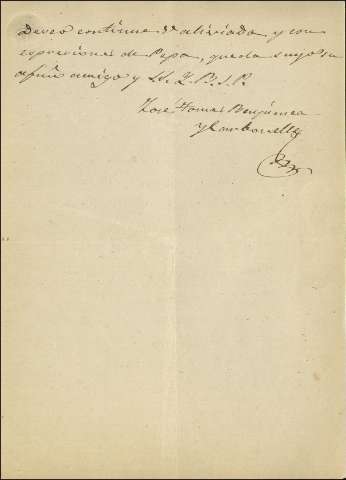 Deseo continue V. aliviado, y con
expresiones de Pepa, queda suyo su
afmo. amigo y S. S. Q. B. S. P.
José Tomas Benjumea
y Carbonell